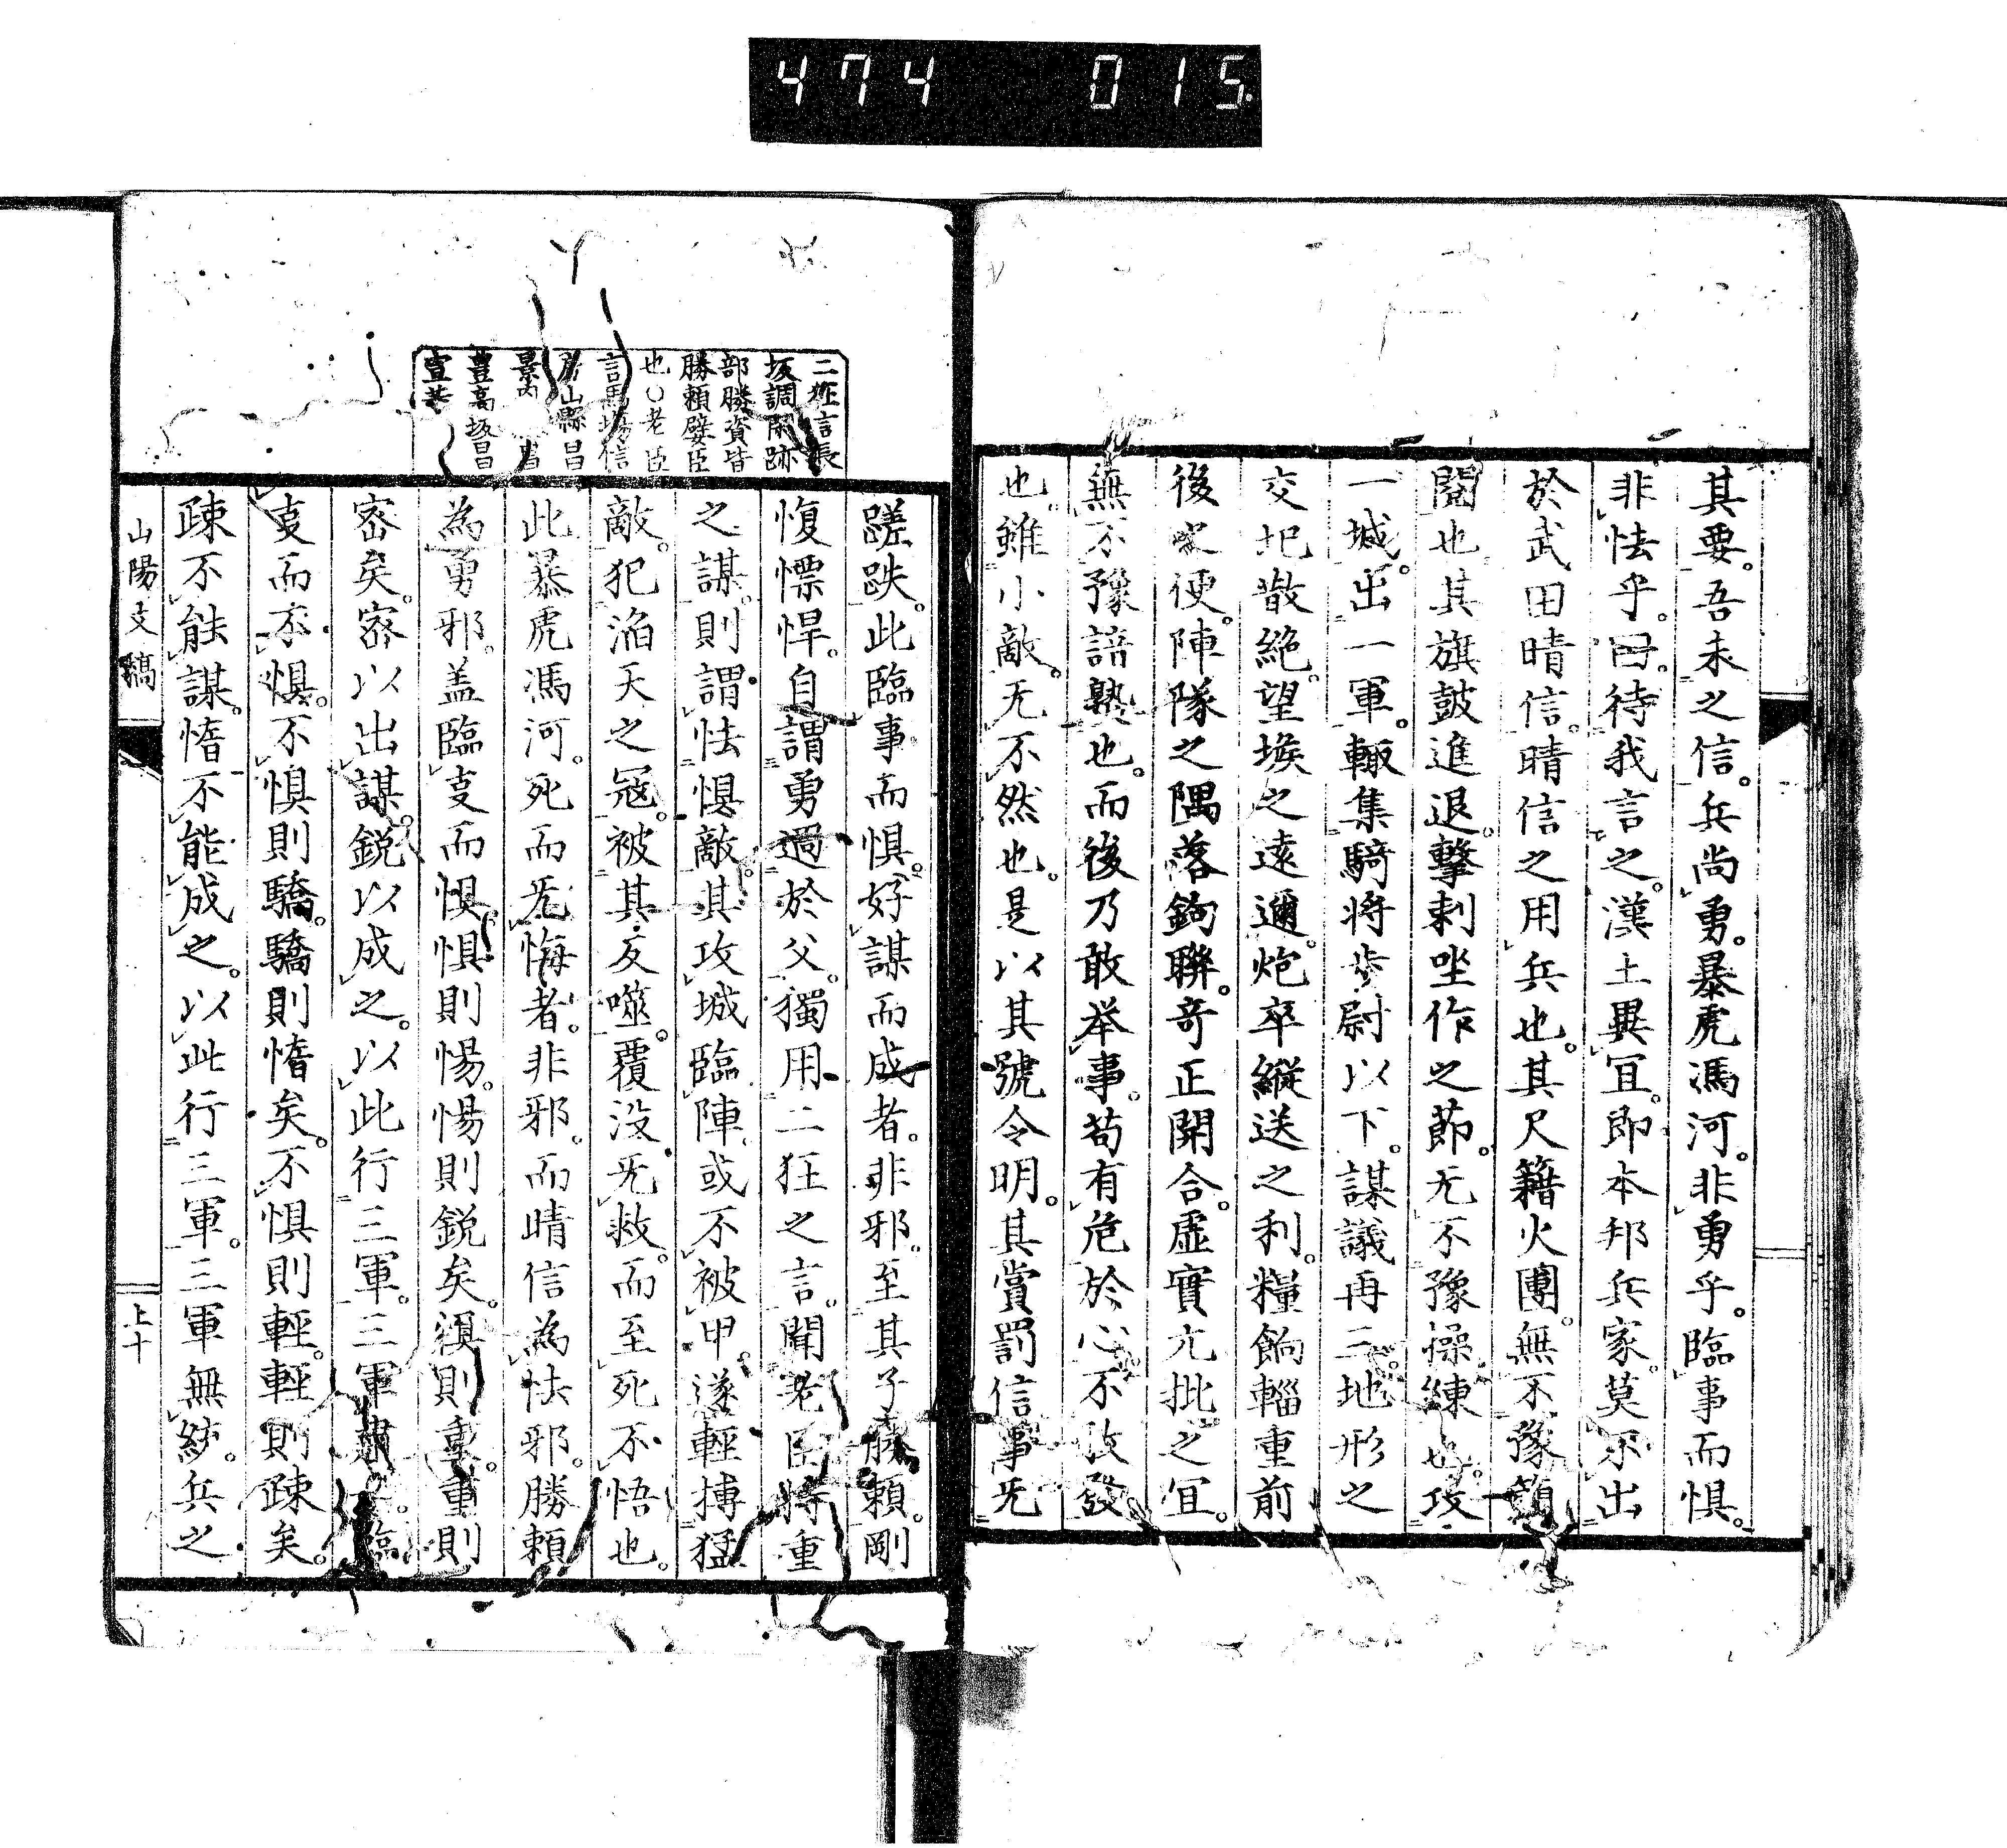 474 015
其要。吾未之信。兵尚勇。暴虎馮河。非勇乎。臨事而惧。
非怯乎。曰。待我言之。漢土異宜。即本邦兵家。莫不出
於武田晴信。晴信之用兵也。其尺籍火團。無不豫
閱也。其旗鼓進退。擊刺坐作之節。无不豫操練也。攻
一城。出一軍。輙集騎将步尉以下。謀議再三。地形之
交圯散絶。望堠之遠邇。炮卒縦送之利。糧餉輜重前
後之便。陣隊之隅落鉤聯。奇正開合。虛實亢批之宜。
無不豫諳熟也。而後乃敢举事。苟有危於心。不敢發
也。雖小敵。无不然也。是以其號令明。其賞罰信。事旡
二狂言長
坂調閑跡
部勝資皆
勝頼嬖臣
也○老臣
言馬場信
房山縣昌
景内 昌
豊高坂昌
宣等
蹉跌。此臨事而惧。好謀而成者。非邪。至其子勝頼。剛
愎慓悍。自謂勇過於父。獨用二狂之言。聞老臣持重
之謀。則謂怯惧敵。其攻城臨陣。或不被甲。遂輕摶猛
敵。犯滔天之冦。被其反噬。覆没旡救。而至死不悟也。
此暴虎馮河。死而旡悔者。非邪。而晴信為怯邪。勝頼
為勇邪。盖臨叓而惧。惧則惕。惕則鋭矣。惧則重。重則
宻矣。宻以出謀。鋭以成之。以此行三軍。三軍肅 。臨
叓而不惧。不惧則驕。驕則惰矣。不惧則輕。輕則疎矣。
疎不能謀。惰不能成之。以此行三軍。三軍無統。兵之
山陽文稿
上十